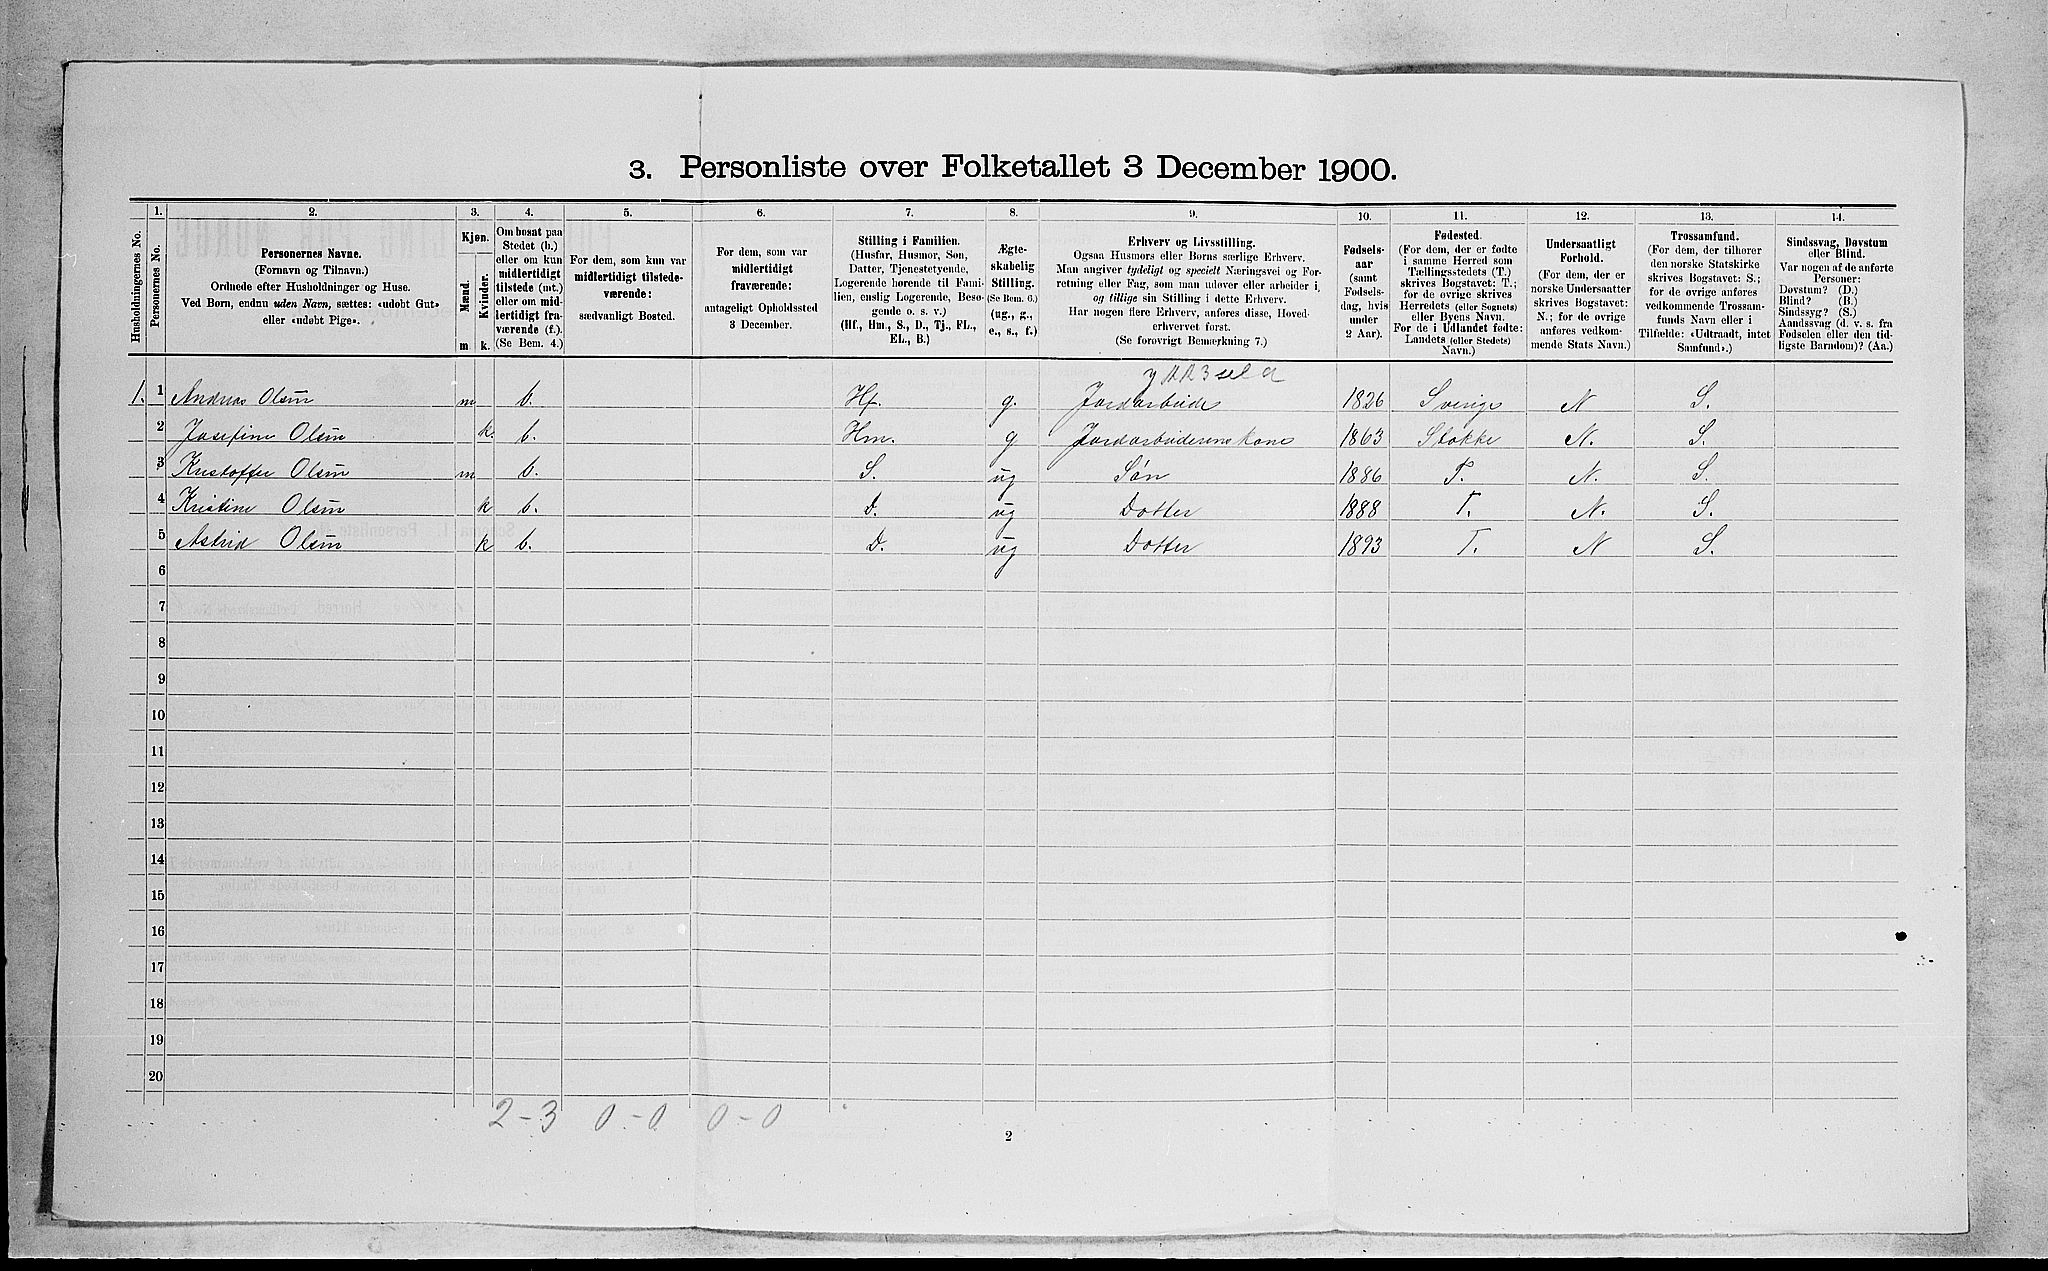 3. Personliste over Folketallet 3 December 1900.
1. 2. 3. 4. 5. 6. 7. 8. 9. 10. 11. 12. 13. 14.
Husholdningernes No.
Personernes No.
Personernes Navne.
(Fornavn og Tilnavn.)
Ordnede efter Husholdninger og Huse.
Ved Børn, endnu uden Navn, sættes: «udøbt Gut»
eller «udøbt Pige».
Kjøn.
Mænd.
Kvinder.
m k.
Om bosat paa
Stedet (b.)
eller om kun
midlertidigt
tilstede (mt.)
eller om mid-
lertidigt fra-
værende (f.).
(Se Bem. 4.)
For dem, som kun var
midlertidigt tilstede-
værende:
sædvanligt Bosted.
For dem, som var
midlertidigt
fraværende:
antageligt Opholdssted
3 December.
Stilling i Familien.
(Husfar, Husmor, Søn,
Datter, Tjenestetyende,
Logerende hørende til Fami-
lien, enslig Logerende, Besø-
gende o. s. v.)
(Hf., Hm., S., D., Tj., FL.,
EL., B.)
Ægte-
skabelig
Stilling.
(Se Bem. 6.)
(ug., g.,
e., s., f.)
Erhverv og Livsstilling.
Ogsaa Husmors eller Børns særlige Erhverv.
Man angiver tydeligt og specielt Næringsvei og For-
retning eller Fag, som man udøver eller arbeider i,
og tillige sin Stilling i dette Erhverv.
Har nogen flere Erhverv, anføres disse, Hoved-
erhvervet først.
(Se forøvrigt Bemærkning 7.)
Fødsels-
aar
(samt
Fødsels-
dag, hvis
under
2 Aar).
Fødested.
(For dem, der er fødte
i samme Herred som
Tællingsstedets (T.)
skrives Bogstavet: T.;
for de øvrige skrives
Herredets (eller Sognets)
eller Byens Navn.
For de i Udlandet fødte:
Landets (eller Stedets)
Navn.)
Undersaatligt
Forhold.
(For dem, der er
norske Undersaatter
skrives Bogstavet:
N.; for de øvrige
anføres vedkom-
mende Stats Navn.)
Trossamfund.
(For dem, der tilhører
den norske Statskirke
skrives Bogstavet: S.;
for de øvrige anføres
vedkommende Trossam-
funds Navn eller i
Tilfælde: «Udtraadt, intet
Samfund».)
Sindssvag, Døvstum
eller Blind.
Var nogen af de anførte
Personer:
Døvstum? (D.)
Blind? (B.)
Sindssyg? (S.)
Aandssvag (d. v. s. fra
Fødselen eller den tid-
ligste Barndom)? (Aa.)
1. 1 Andreas Olsen m b. Hf. g. Jordarbeide 1826 Sverige N S.
2 Josefine Olsen k. b. Hm. g Jordarbiderens kone 1863 Stokke N. S.
3 Kristoffer Olsen m b. S. ug Søn 1886 T. N. S.
4 Kristine Olsen k b. D. ug Dotter 1888 T. N. S.
5 Astrid Olsen k b. D. ug Dotter 1893 T. N S.
6
7
8
9
10
11
12
13
14
15
16
17
18
19
20
2-3 0-0 0-0
2